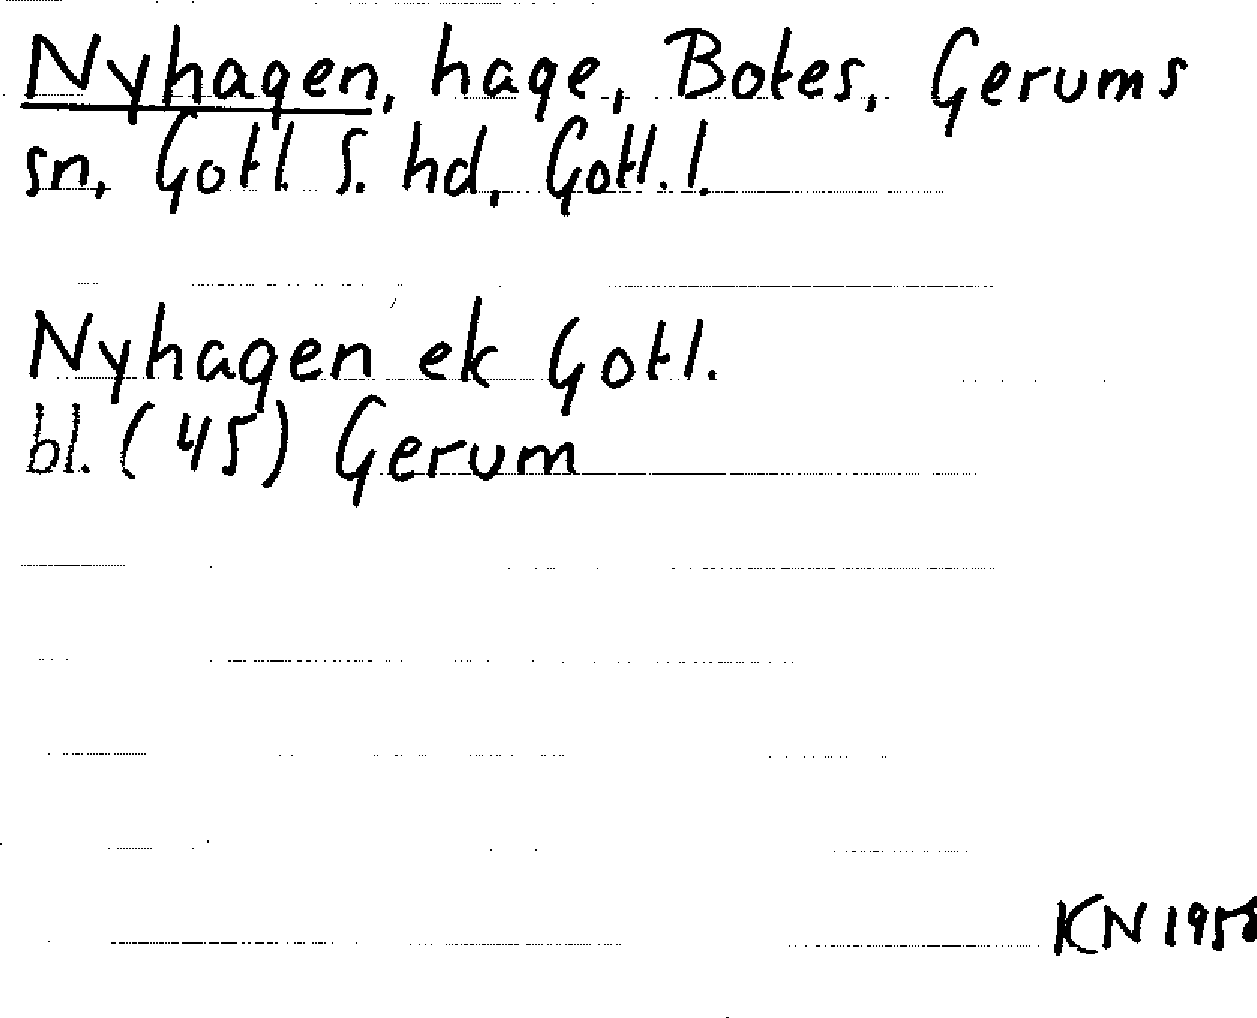 Nyhagen, hage, Botes, Gerums
sn, Gotl. S. hd, Gotl. l.
Nyhagen ek Gotl.
bl. (45) Gerum
KN 1958